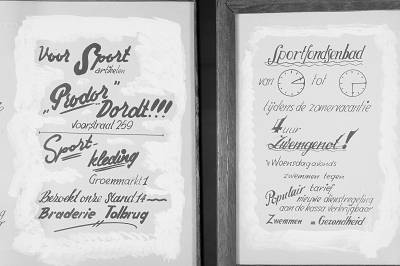 Voor Sport
artikelen
"Rodor"
Dordt!!!
Voorstraat 259
Sport-
kleding
Groenmarkt 1
Bezoekt onze Stand 14
Braderie Tolbrug
Sportfondsenbad
van tot
tijdens de zomervacantie
4 uur
Zwemgenot!
's Woensdagavonds
zwemmen tegen
Populair tarief
nieuwe dienstregeling
aan de kassa verkrijgbaar
Zwemmen is Gezondheid